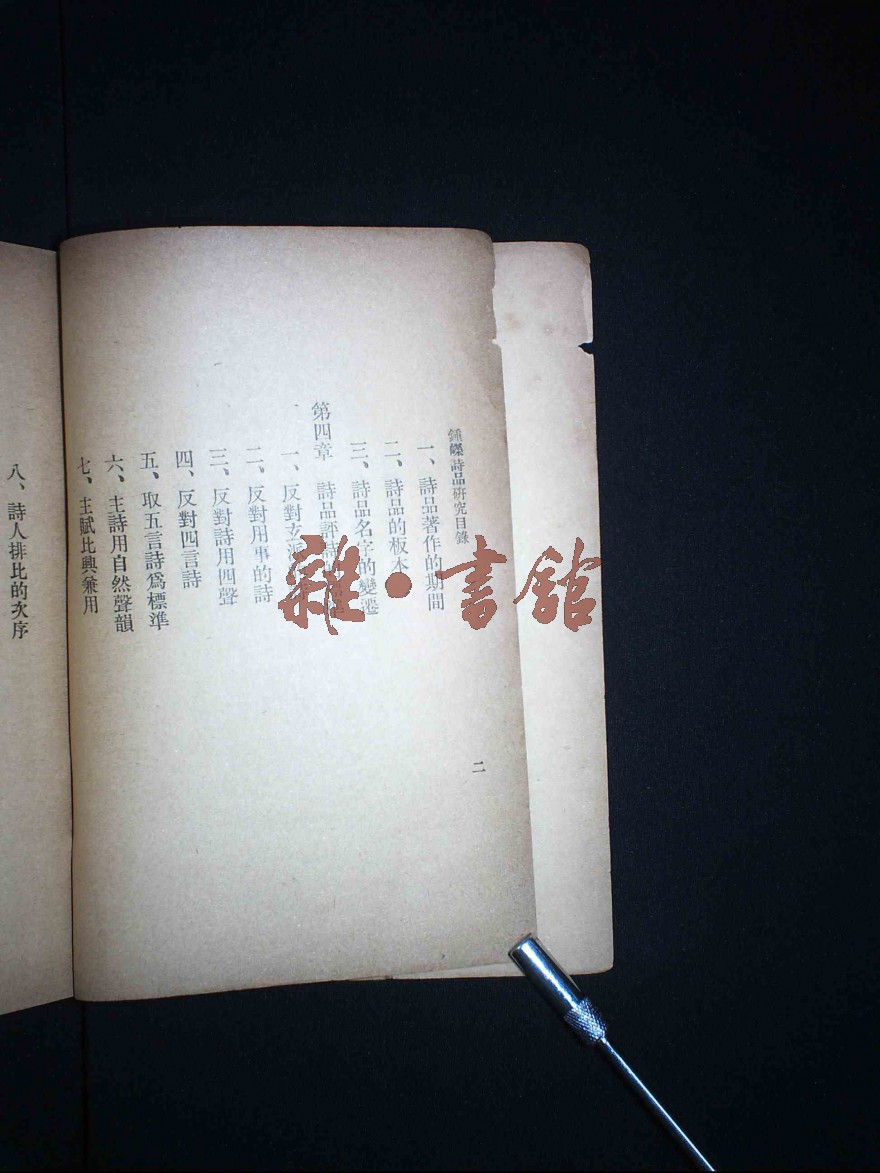 鍾嶸詩品研究目錄
一、詩品著作的期間
二、詩品的板本
三、詩品名字的變遷
第四章　詩品評詩
一、反對玄
二、反對用事的詩
三、反對詩用四聲
四、反對四言詩
五、取五言詩爲標準
六、主詩用自然聲韻
七、主賦比興兼用
二
八、詩人排比的次序
雜・書館